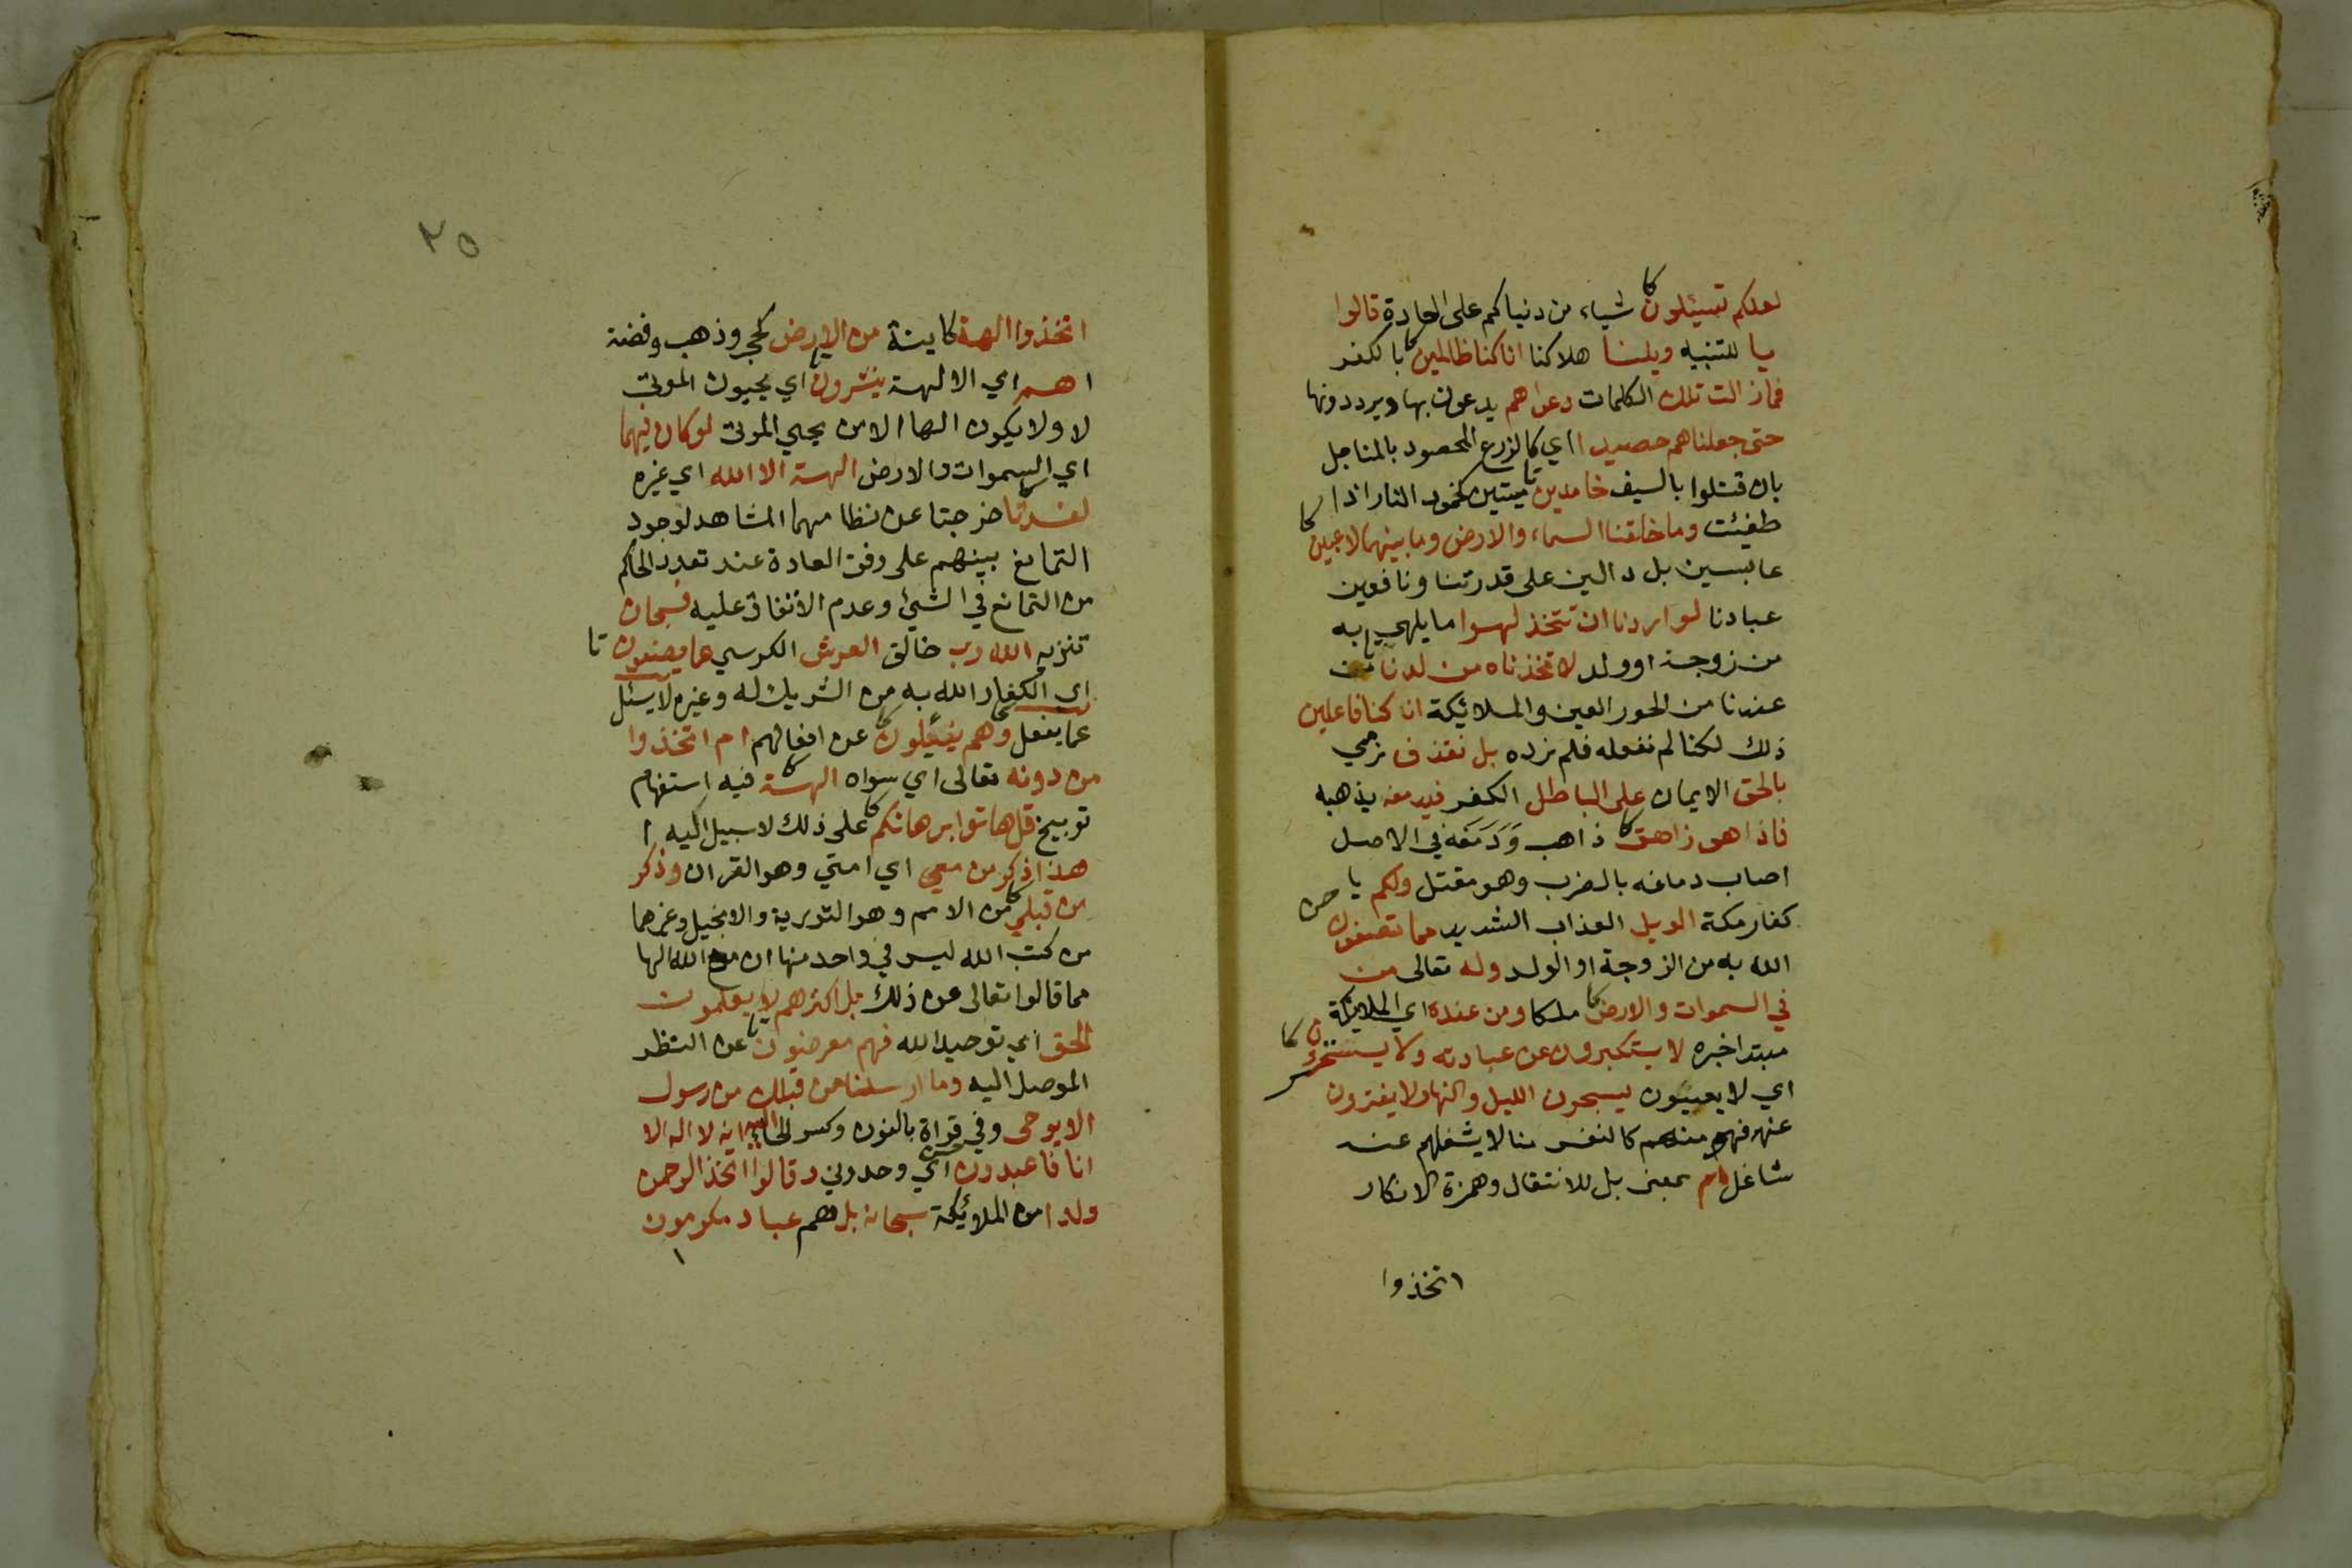 لعلكم تسئلون كا شياء من دنياكم على العادة قالوا
يا للتنبيه ويلنا هلاكنا انا كنا ظالمين كا بالكفر
فما زالت تلك الكلمات دعواهم يدعون بها ويرددونها
حتى جعلناهم حصيدا اي كالزرع المحصود بالمناجل
بان قتلوا بالسيف خامدين تا ميتين كخمود النار اذا
طفيئت وما خلقنا السماء والارض وما بينهما لاعبين كا
عابسين بل دالين على قدرتنا ونافعين
عبادنا لو اردنا ان نتخذ لهوا ما يلهي به
من زوجة او ولد لاتخذناه من لدنا من
عندنا من الحور العين والملائيكة ان كنا فاعلين
ذلك لكنا لم نفعله فلم نرده بل نقذف نرمي
بالحق الايمان على الباطل الكفر فيدمغه يذهبه
فاذا هو زاهق كا ذاهب وَدَمَغه في الاصل
اصاب دماغه بالضرب وهو مقتل ولكم يا
كفار مكة الويل العذاب الشديد مما تصفون
الله به من الزوجة او الولد وله تعالى من
في السموات والارض كا ملكا ومن عنده اي الملائيكة
مبتدا خبره لا يستكبرون عن عبادته ولا يستحسرون كا
اي لا يعييون يسبحون الليل والنهار لا يفترون
عنه فهو منهم كالنفس منا لا يشغلهم عنه
شاغل ام بمعنى بل للانتقال وهمزة الانكار
اتخذوا
٣٥
اتخذوا الهة كاينة من الارض كحجر وذهب وفضة
اهم اي الالهة ينشرون تا اي يحييون الموتى
لا ولا يكون الها الا من يحيي الموتى لو كان فيهما
اي السموات والارض الهة الا الله اي غيره
لفسدتا خرجتا عن نظامهما المشاهد لوجود
التمانع بينهم على وفق العادة عند تعدد الحاكم
من التمانع في الشيئ وعدم الاتفاق عليه فسبحان
تنزيه الله رب خالق العرش الكرسي عما يصفون تا
اي الكفار الله به من الشريك له وغيره لا يسئل
عما يفعل وهم يسئلون كا عن افعالهم ام اتخذوا
من دونه تعالى اي سواه الهة كا فيه استفهام
توبيخ قل هاتوا برهانكم كا على ذلك لا سبيل اليه
هذا ذكر من معي اي امتي وهو القران وذكر
من قبلي كا من الامم وهو التورية والانجيل وغيرهما
من كتب الله ليس في واحد منها ان مع الله الها
مما قالوا تعالى عن ذلك بل اكثرهم لا يعلمون
الحق اي توحيد الله فهم معرضون تا عن النظر
الموصل اليه وما ارسلنا من قبلك من رسول
الا يوحى وفي قراة بالنون وكسر الحاء اليه انه لا اله الا
انا فاعبدون اي وحدوني وقالوا اتخذ الرحمن
ولدا من الملائيكة سبحانه بل هم عباد مكرمون